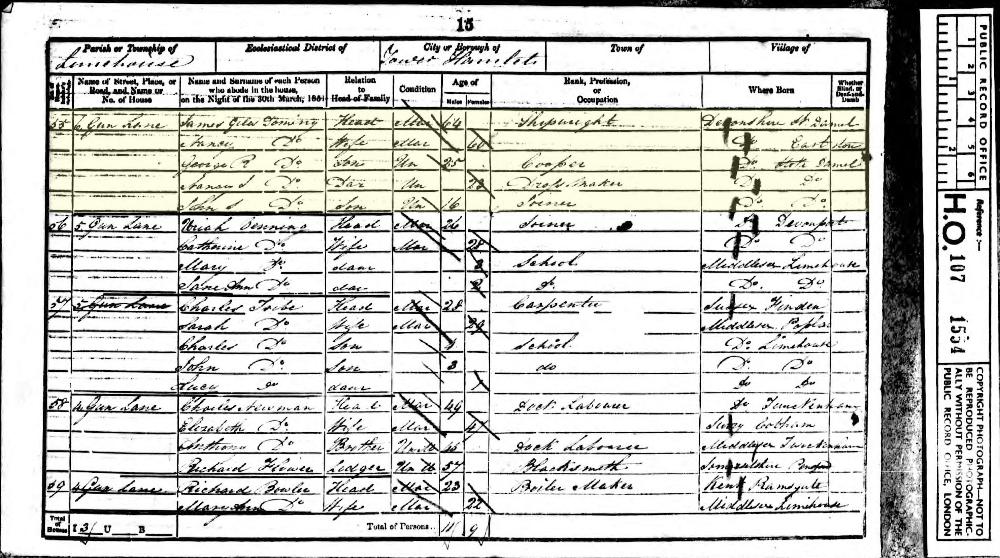 15
Parish or Township of
Limehouse
Ecclesiastical District of
City or Borough of
Tower Hamlets
Town of
Village of
Name of Street, Place, or Road, and Name or No. of House
Name and Surname of each Person who abode in the house, on the Night of the 30th March, 1851
Relation to Head of Family
Condition
Age of
Males Females
Rank, Profession, or Occupation
Where Born
Whether Blind, or Deaf-and-Dumb
55 6 Gun Lane James Giles Head Mar 64 Shipwright Devonshire
Nancy Do Wife Mar 60 Do
George R Do Son Un 25 Cooper Do
Do Un 23 Dress Maker Do Do
John S Do Son Un 16 Joiner Do Do
56 5 Gun Lane Head Mar 26 Joiner Do Devonport
Catherine Do Wife Mar 28 Do Do
Mary Do daur School Middlesex Limehouse
Jane Ann Do daur Do Do
57 5 Gun Lane Charles Head Mar 28 Carpenter Sussex Findon
Sarah Do Wife Mar 29 Middlesex Poplar
Charles Do Son School Do Limehouse
John Do Son 3 do Do Do
Lucy Do daur Do Do
58 4 Gun Lane Charles Newman Head Mar 49 Dock Labourer Do
Elizabeth Do Wife Mar Surry Cobham
Do Brother Dock Labourer Middlesex
Richard Flower Lodger 57 Blacksmith Somersetshire
59 4 Gun Lane Richard Bowler Head Mar 23 Boiler Maker Kent Ramsgate
Mary Ann Do Wife Mar 22 Middlesex Limehouse
Total of Houses
I 3 U B
Total of Persons..
11 9
PUBLIC RECORD OFFICE
1 2 3 4 5 6
1 2
Reference :—
H.O. 107 1554
COPYRIGHT PHOTOGRAPH – NOT TO
BE REPRODUCED PHOTOGRAPHIC-
ALLY WITHOUT PERMISSION OF THE
PUBLIC RECORD OFFICE, LONDON